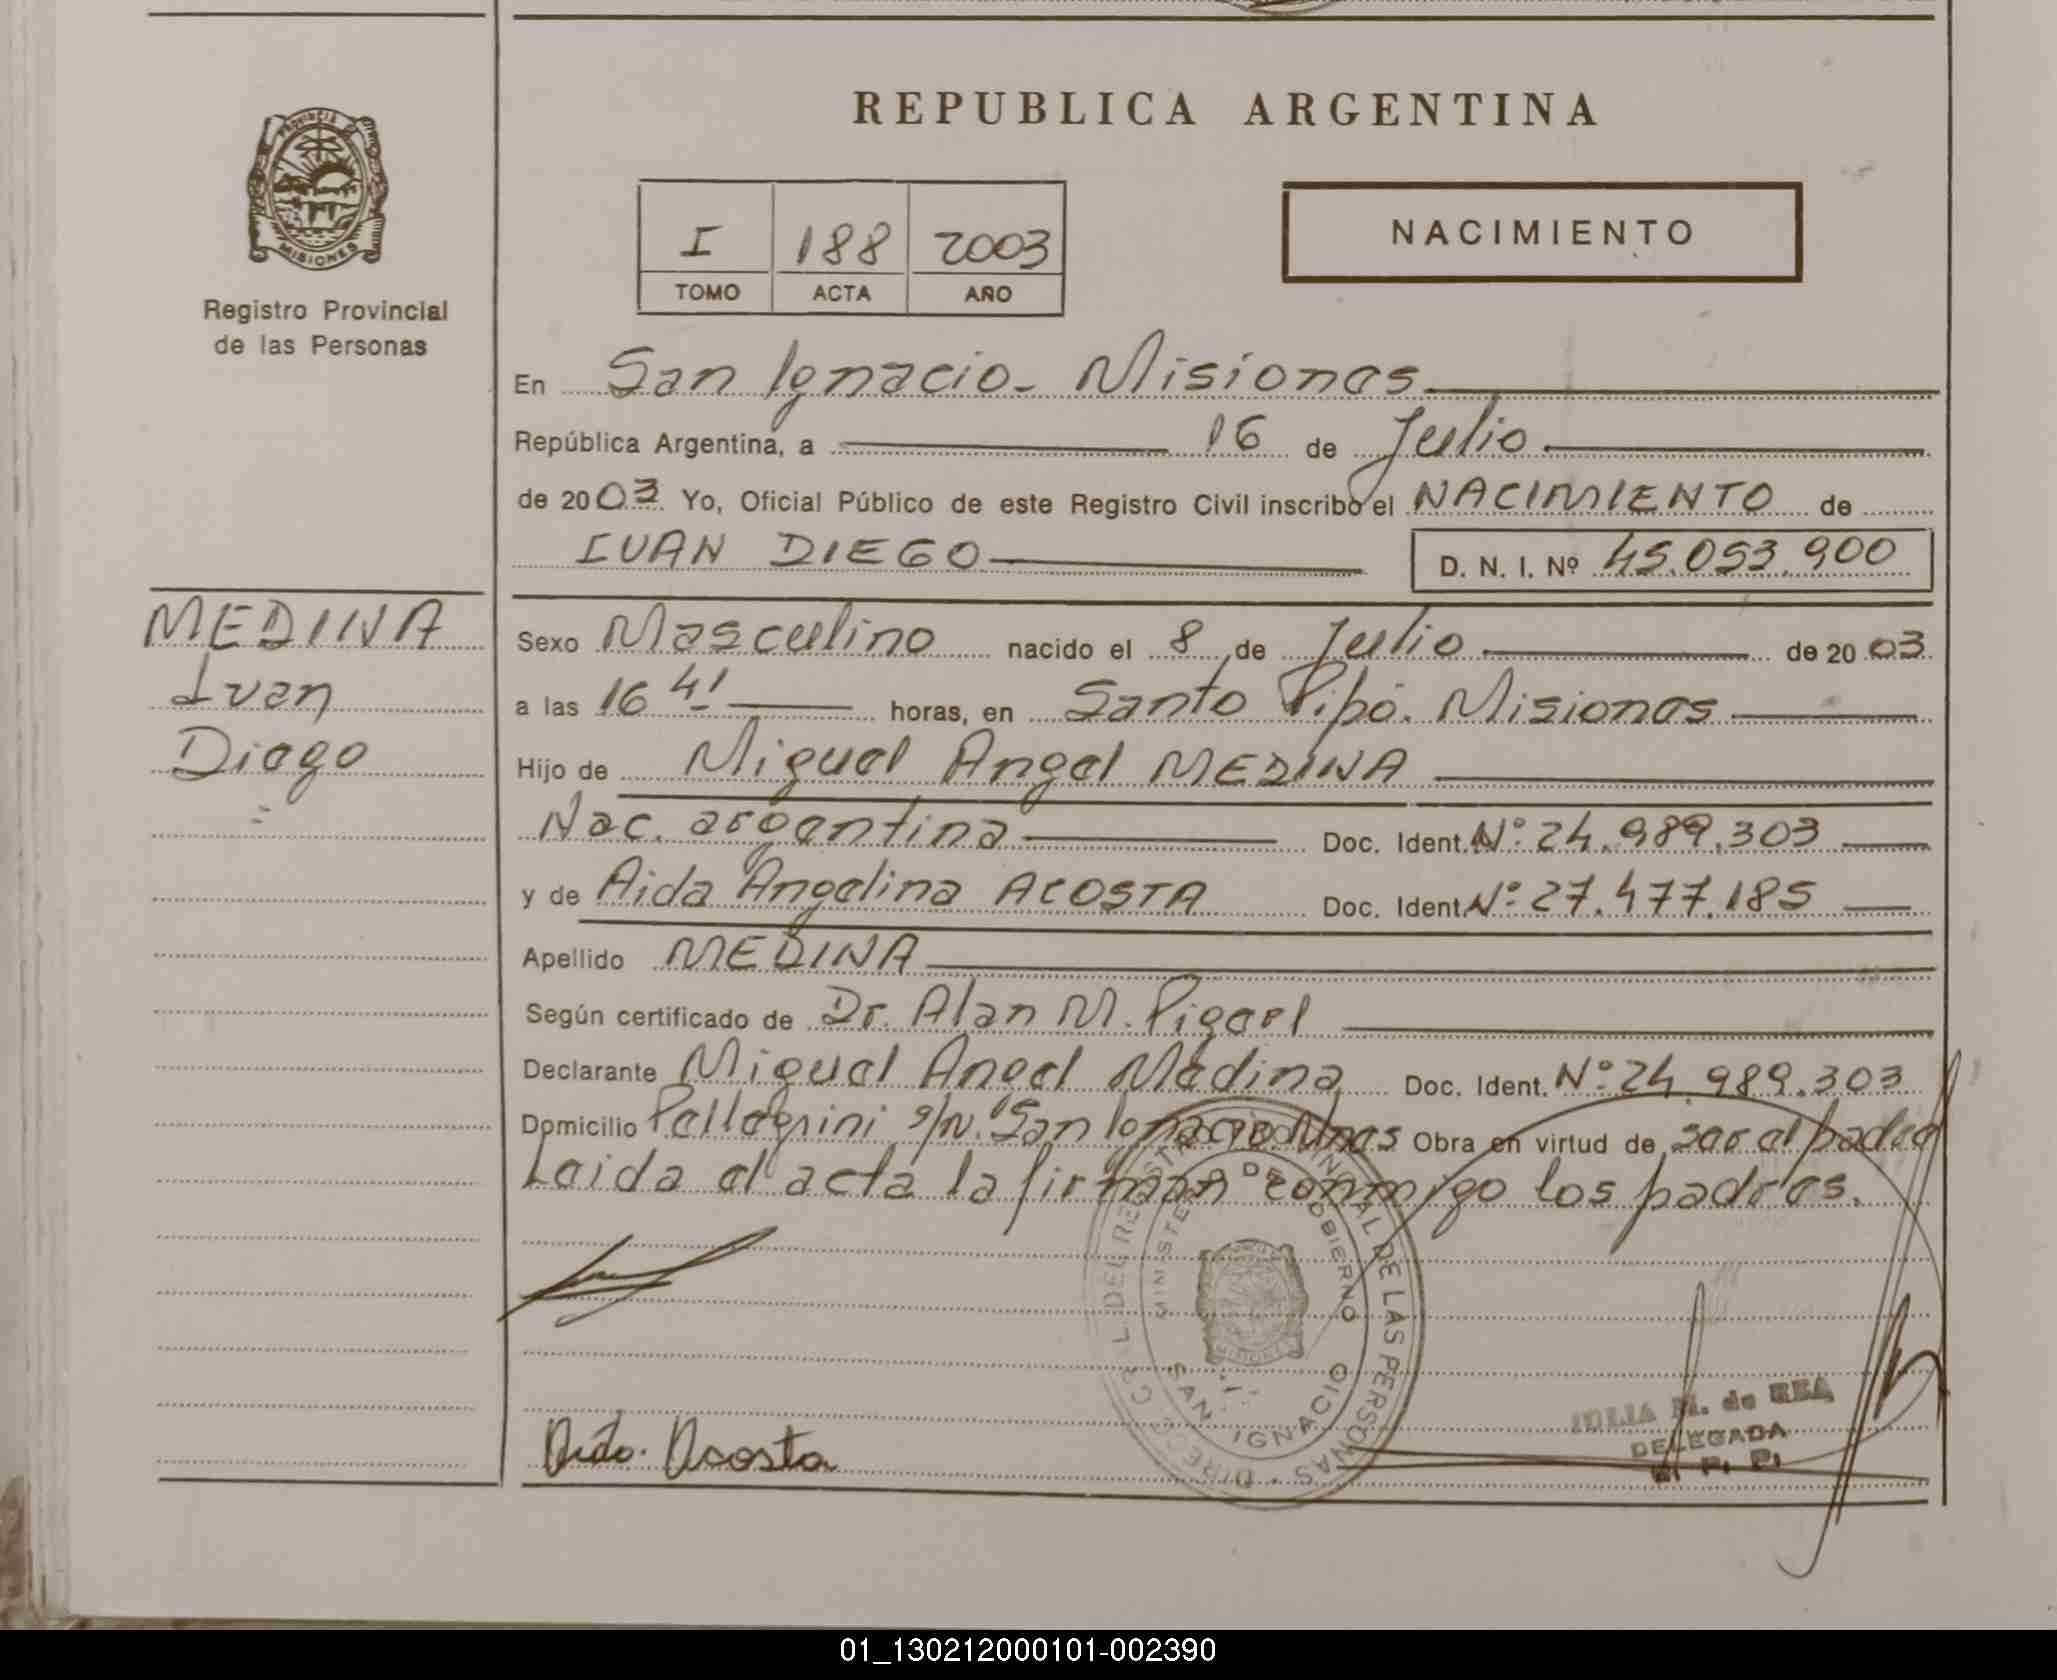 REPUBLICA ARGENTINA
PROVINCIA
MISIONES
Registro Provincial
de las Personas
I 188 2003
TOMO ACTA AÑO
NACIMIENTO
En San Ignacio - Misiones
República Argentina, a 16 de Julio
de 2003 Yo, Oficial Público de este Registro Civil inscribo el NACIMIENTO de
IVAN DIEGO D. N. I. Nº 45.053.900
MEDINA
Ivan
Diego
Sexo Masculino nacido el 8 de Julio de 2003
a las 16 41 horas, en Santo Pipó. Misiones
Hijo de Miguel Angel MEDINA
Nac. argentina Doc. Ident. Nº 24.989.303
y de Aida Angelina ACOSTA Doc. Ident. Nº 27.477.185
Apellido MEDINA
Según certificado de Dr. Alan M.
Declarante Miguel Angel Medina Doc. Ident. Nº 24.989.303
Domicilio Pellegrini s/n. San Ignacio Mnes Obra en virtud de ser el padre
Leida el acta la firman conmigo los padres.
DIRECC. GRAL. DEL REGISTRO PROVINCIAL DE LAS PERSONAS
MINISTERIO DE GOBIERNO
MISIONES
SAN IGNACIO
Aida Acosta
JULIA M. de REA
DELEGADA
R. P. P.
01_130212000101-002390